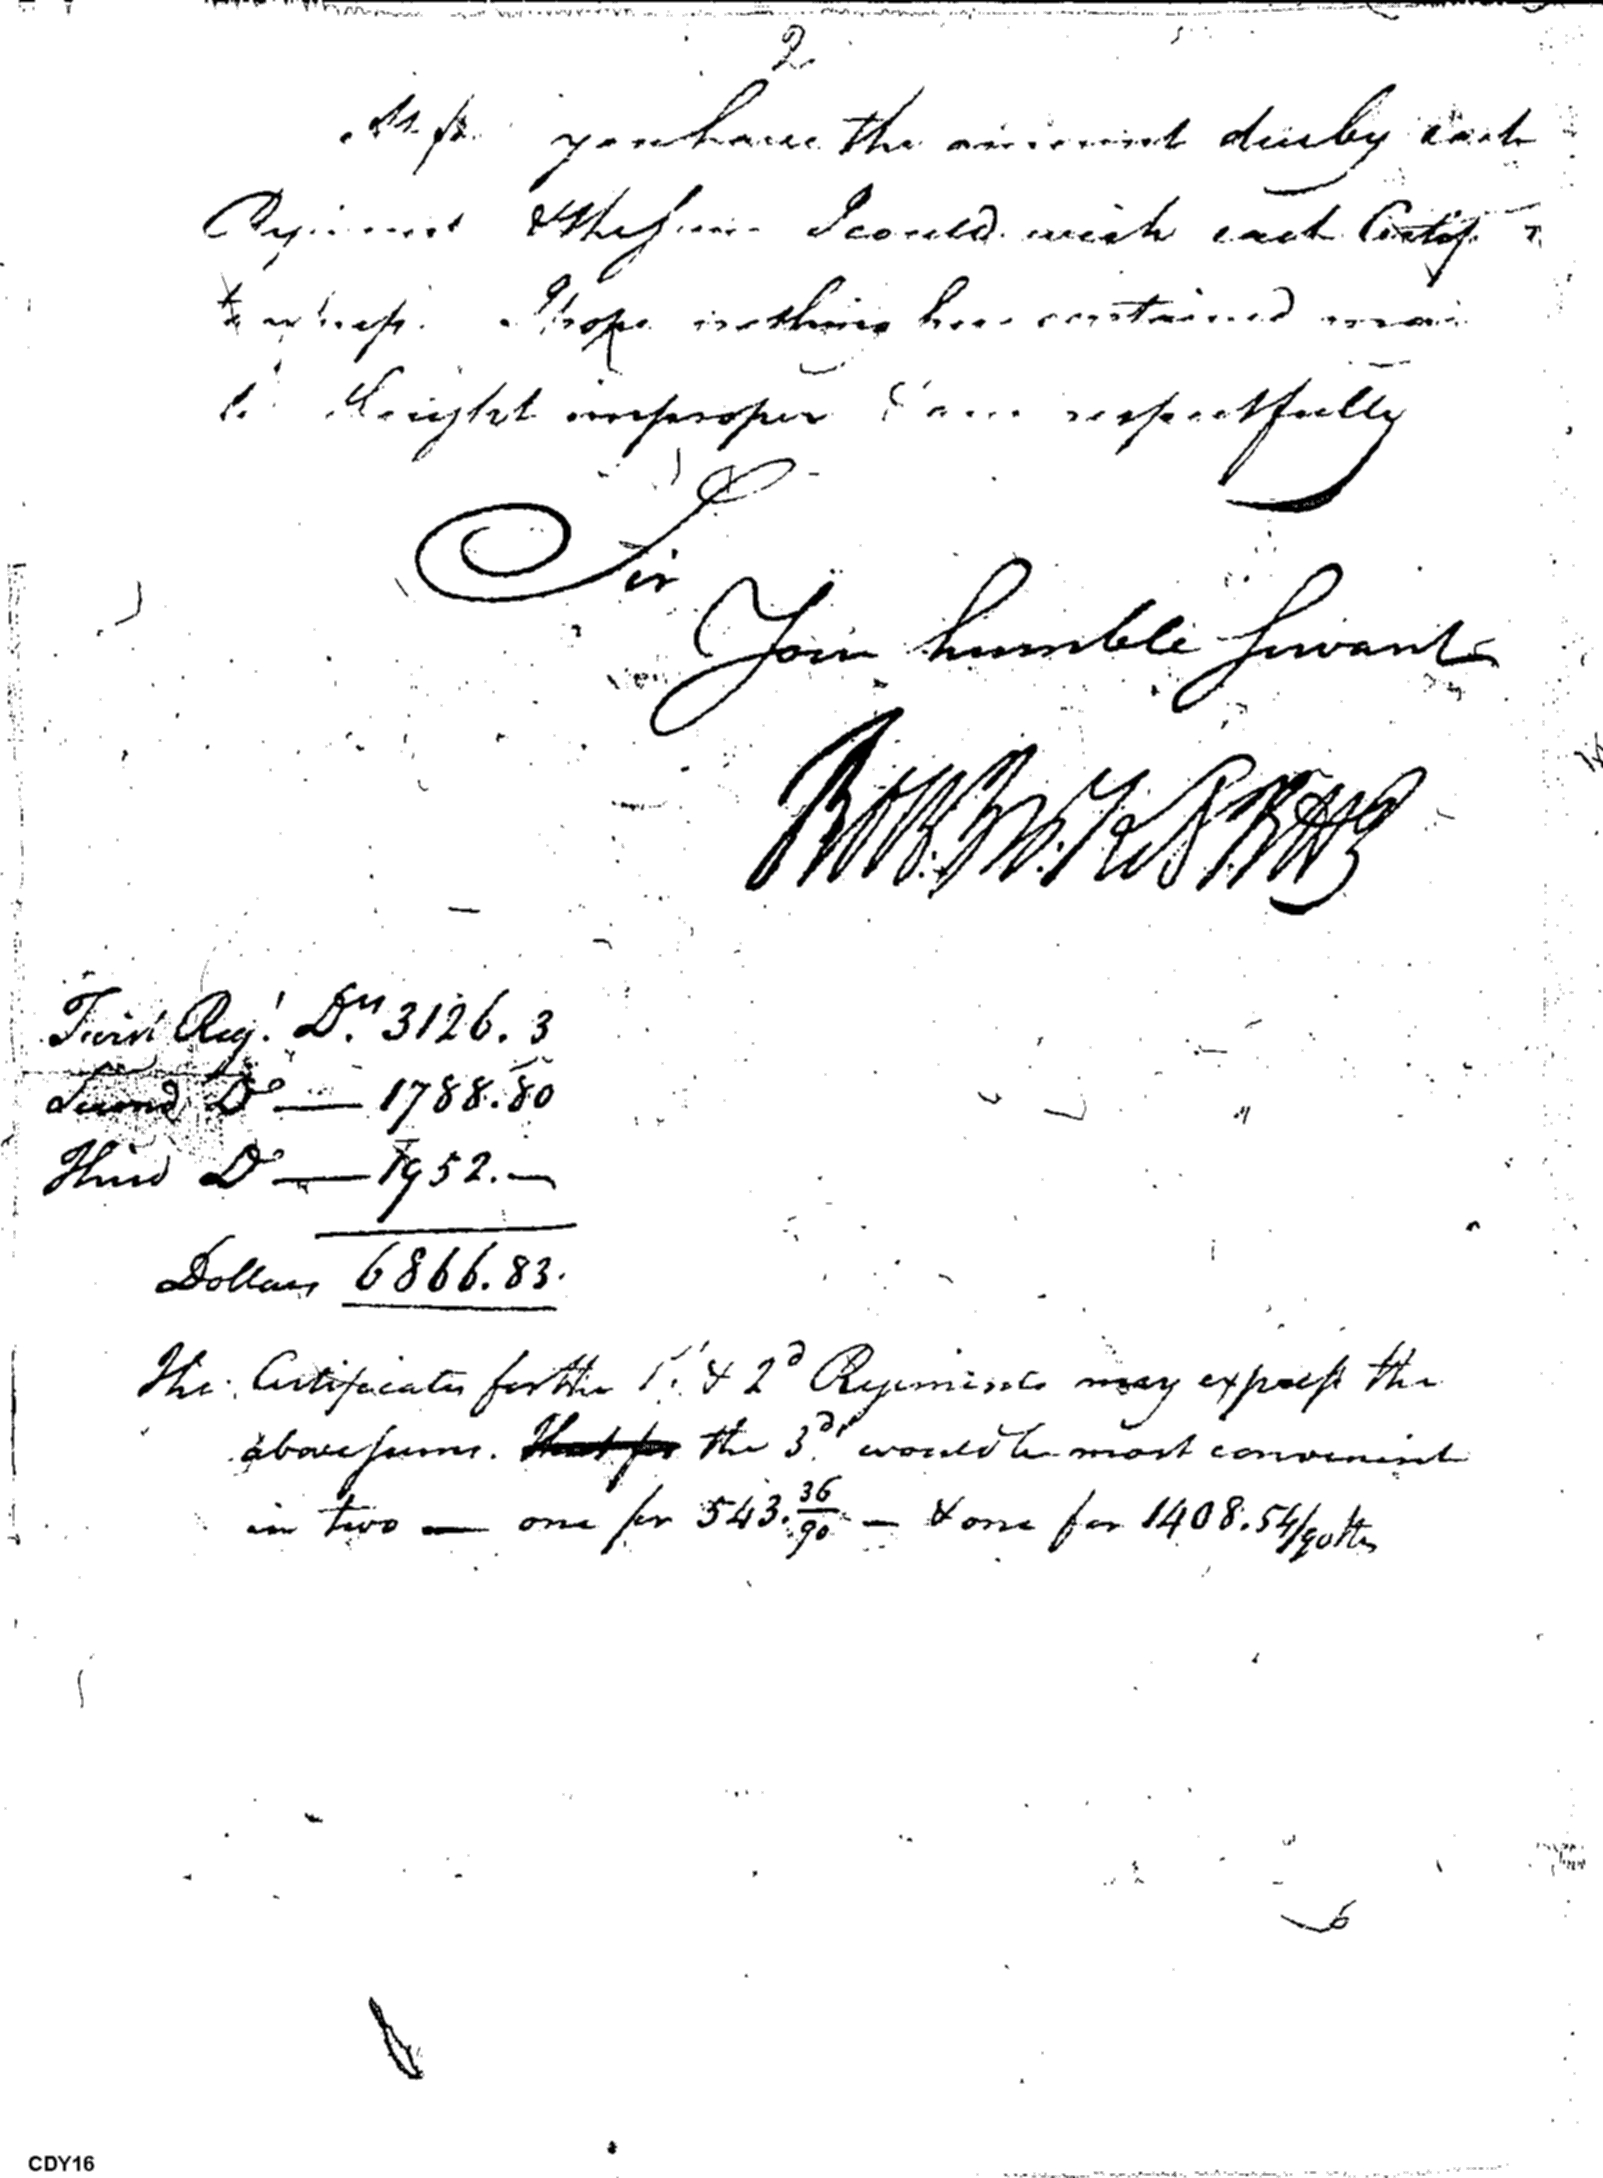 2
At foot you have the amount due by each
Regiment & the sum I could wish each Certif
to express. I hope nothing here contained may
be thought improper I am respectfully
Sir
Your humble Servant
First Reg.t D.rs 3126. 3
Second D.o — 1788. 80
Third D.o — 1952. —
Dollars 6866. 83.
The Certificates for the 1.t & 2.d Regiments may express the
above sums. That for the 3.d would be most convenient
in two — one for 543. 36/90 — & one for 1408. 54/90ths
CDY16